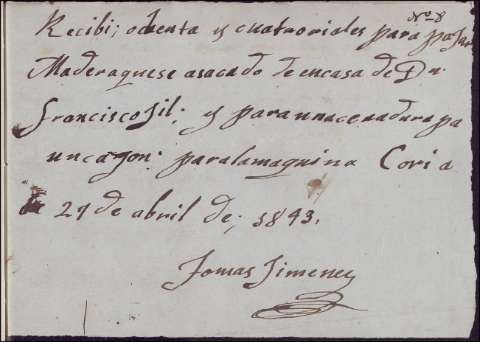 Nº 8
Recibi; ochenta y cuatro riales para pagar
Madera que se a sacado de en casa de Dn.
Francisco Jil; y para una ceradura pa
un cagon. para la maquina Coria
27 de abril de; 1843.
Tomas Jimenez